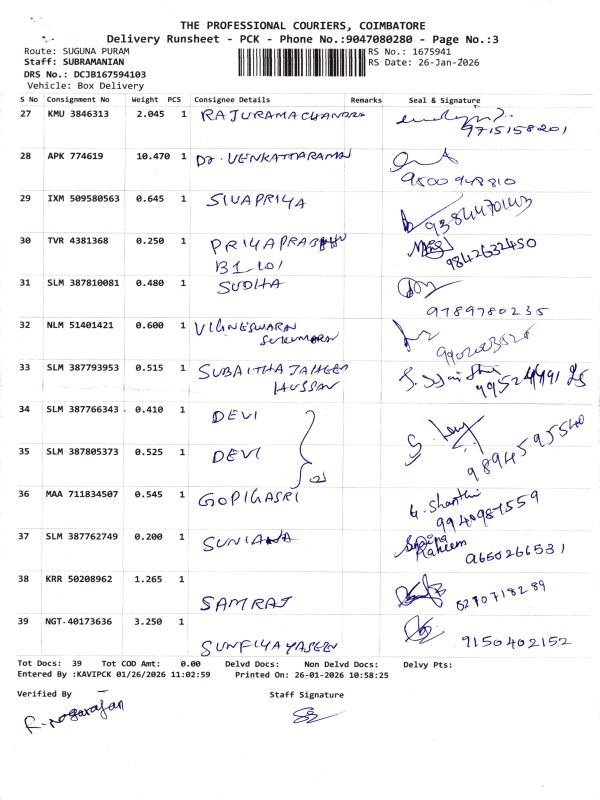 THE PROFESSIONAL COURIERS, COIMBATORE
Delivery Runsheet - PCK - Phone No.:9047080280 - Page No.:3
Route: SUGUNA PURAM RS No.: 1675941
Staff: SUBRAMANIAN RS Date: 26-Jan-2026
DRS No.: DCJB167594103
Vehicle: Box Delivery
S No Consignment No Weight PCS Consignee Details Remarks Seal & Signature
27 KMU 3846313 2.045 1 RAJURAMACHANDRA
9715158201
28 APK 774619 10.470 1 Dr. VENKATTARAMAN
9500948810
29 IXM 509580563 0.645 1 SIVAPRIYA
9384470143
30 TVR 4381368 0.250 1 PRIYAPRABHU 9842632450
B1-101
31 SLM 387810081 0.480 1 SUDHA
9789780235
32 NLM 51401421 0.600 1 VIGNESWARAN
SUKUMARAN
33 SLM 387793953 0.515 1 SUBAITHA JAHEER
HUSSAN
34 SLM 387766343 0.410 1 DEVI
35 SLM 387805373 0.525 1 DEVI 9894595540
36 MAA 711834507 0.545 1 GOPIKASRI G. Shanthi
9940987559
37 SLM 387762749 0.200 1 Raheem
9650266531
38 KRR 50208962 1.265 1
SAMRAJ
39 NGT-40173636 3.250 1 9150402152
SUNFIYAYASEEN
Tot Docs: 39 Tot COD Amt: 0.00 Delvd Docs: Non Delvd Docs: Delvy Pts:
Entered By :KAVIPCK 01/26/2026 11:02:59 Printed On: 26-01-2026 10:58:25
Verified By Staff Signature
R. nagarajan